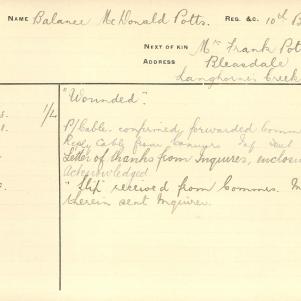 NAME Balance McDonald Potts. REG. &C. 10th B
NEXT OF KIN Mr Frank Pot
ADDRESS Bleasdale
Langhorne's Creek
"Wounded".
1/4
P/Cable. confirmed forwarded Comm
Reply Cable from
Letter of thanks from Inquirer, inclosi
Acknowledged
"Slip" received from Commrs. M
therein sent Inquirer.